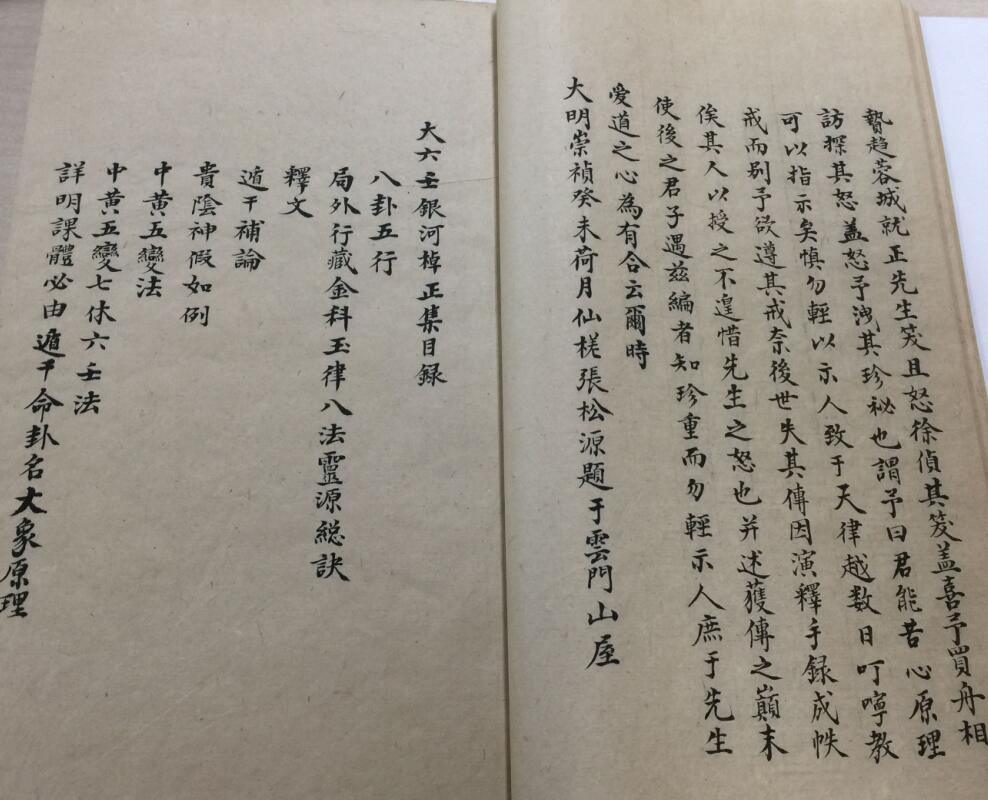 贄趋蓉城就正先生笑且怒徐偵其笑盖喜予買舟相
訪探其怒盖怒予洩其珍秘也謂予曰君能苦心原理
可以指示矣慎勿輕以示人致于天律越数日叮嚀教
戒而别予欲遵其戒奈後世失其傳因演釋手録成帙
俟其人以授之不遑惜先生之怒也并述獲傳之巔末
使後之君子遇兹編者知珍重而勿輕示人庶于先生
愛道之心為有合云爾時
大明崇禎癸未荷月仙槎張松源題于雲門山屋
大六壬銀河棹正集目録
八卦五行
局外行藏金科玉律八法靈源総訣
釋文
遁干補論
貴陰神假如例
中黄五變法
中黄五變七休六壬法
詳明課體必由遁干命卦名大象原理